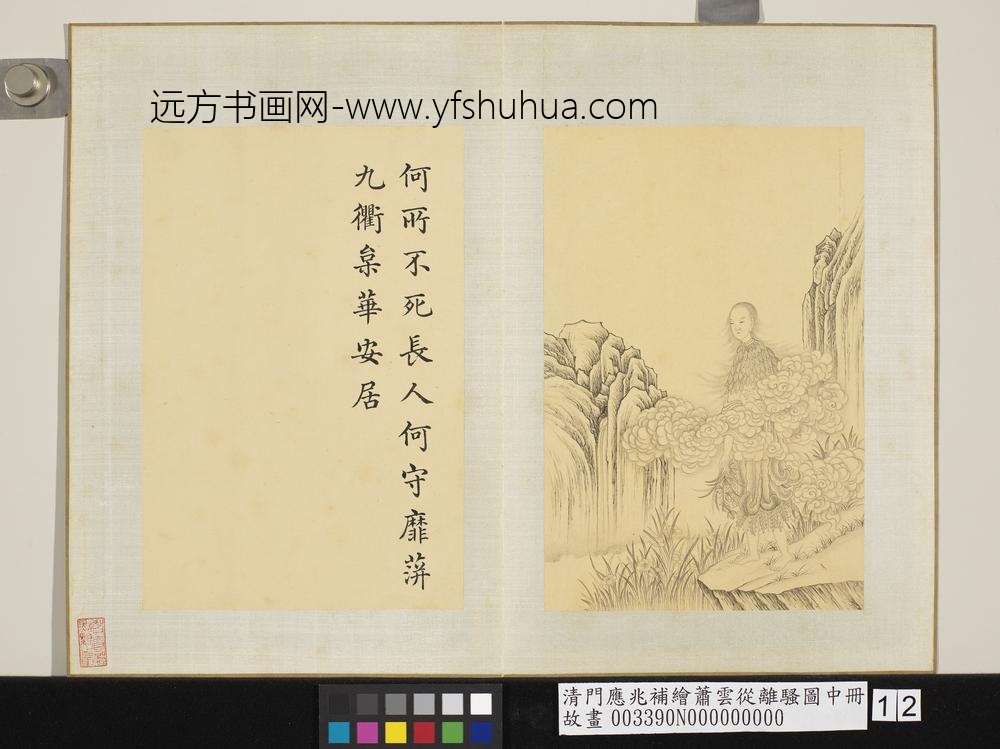 远方书画网-www.yfshuhua.com
何所不死長人何守靡蓱
九衢枲華安居
清門應兆補繪蕭雲從離騷圖中冊
故畫 003390N000000000
12